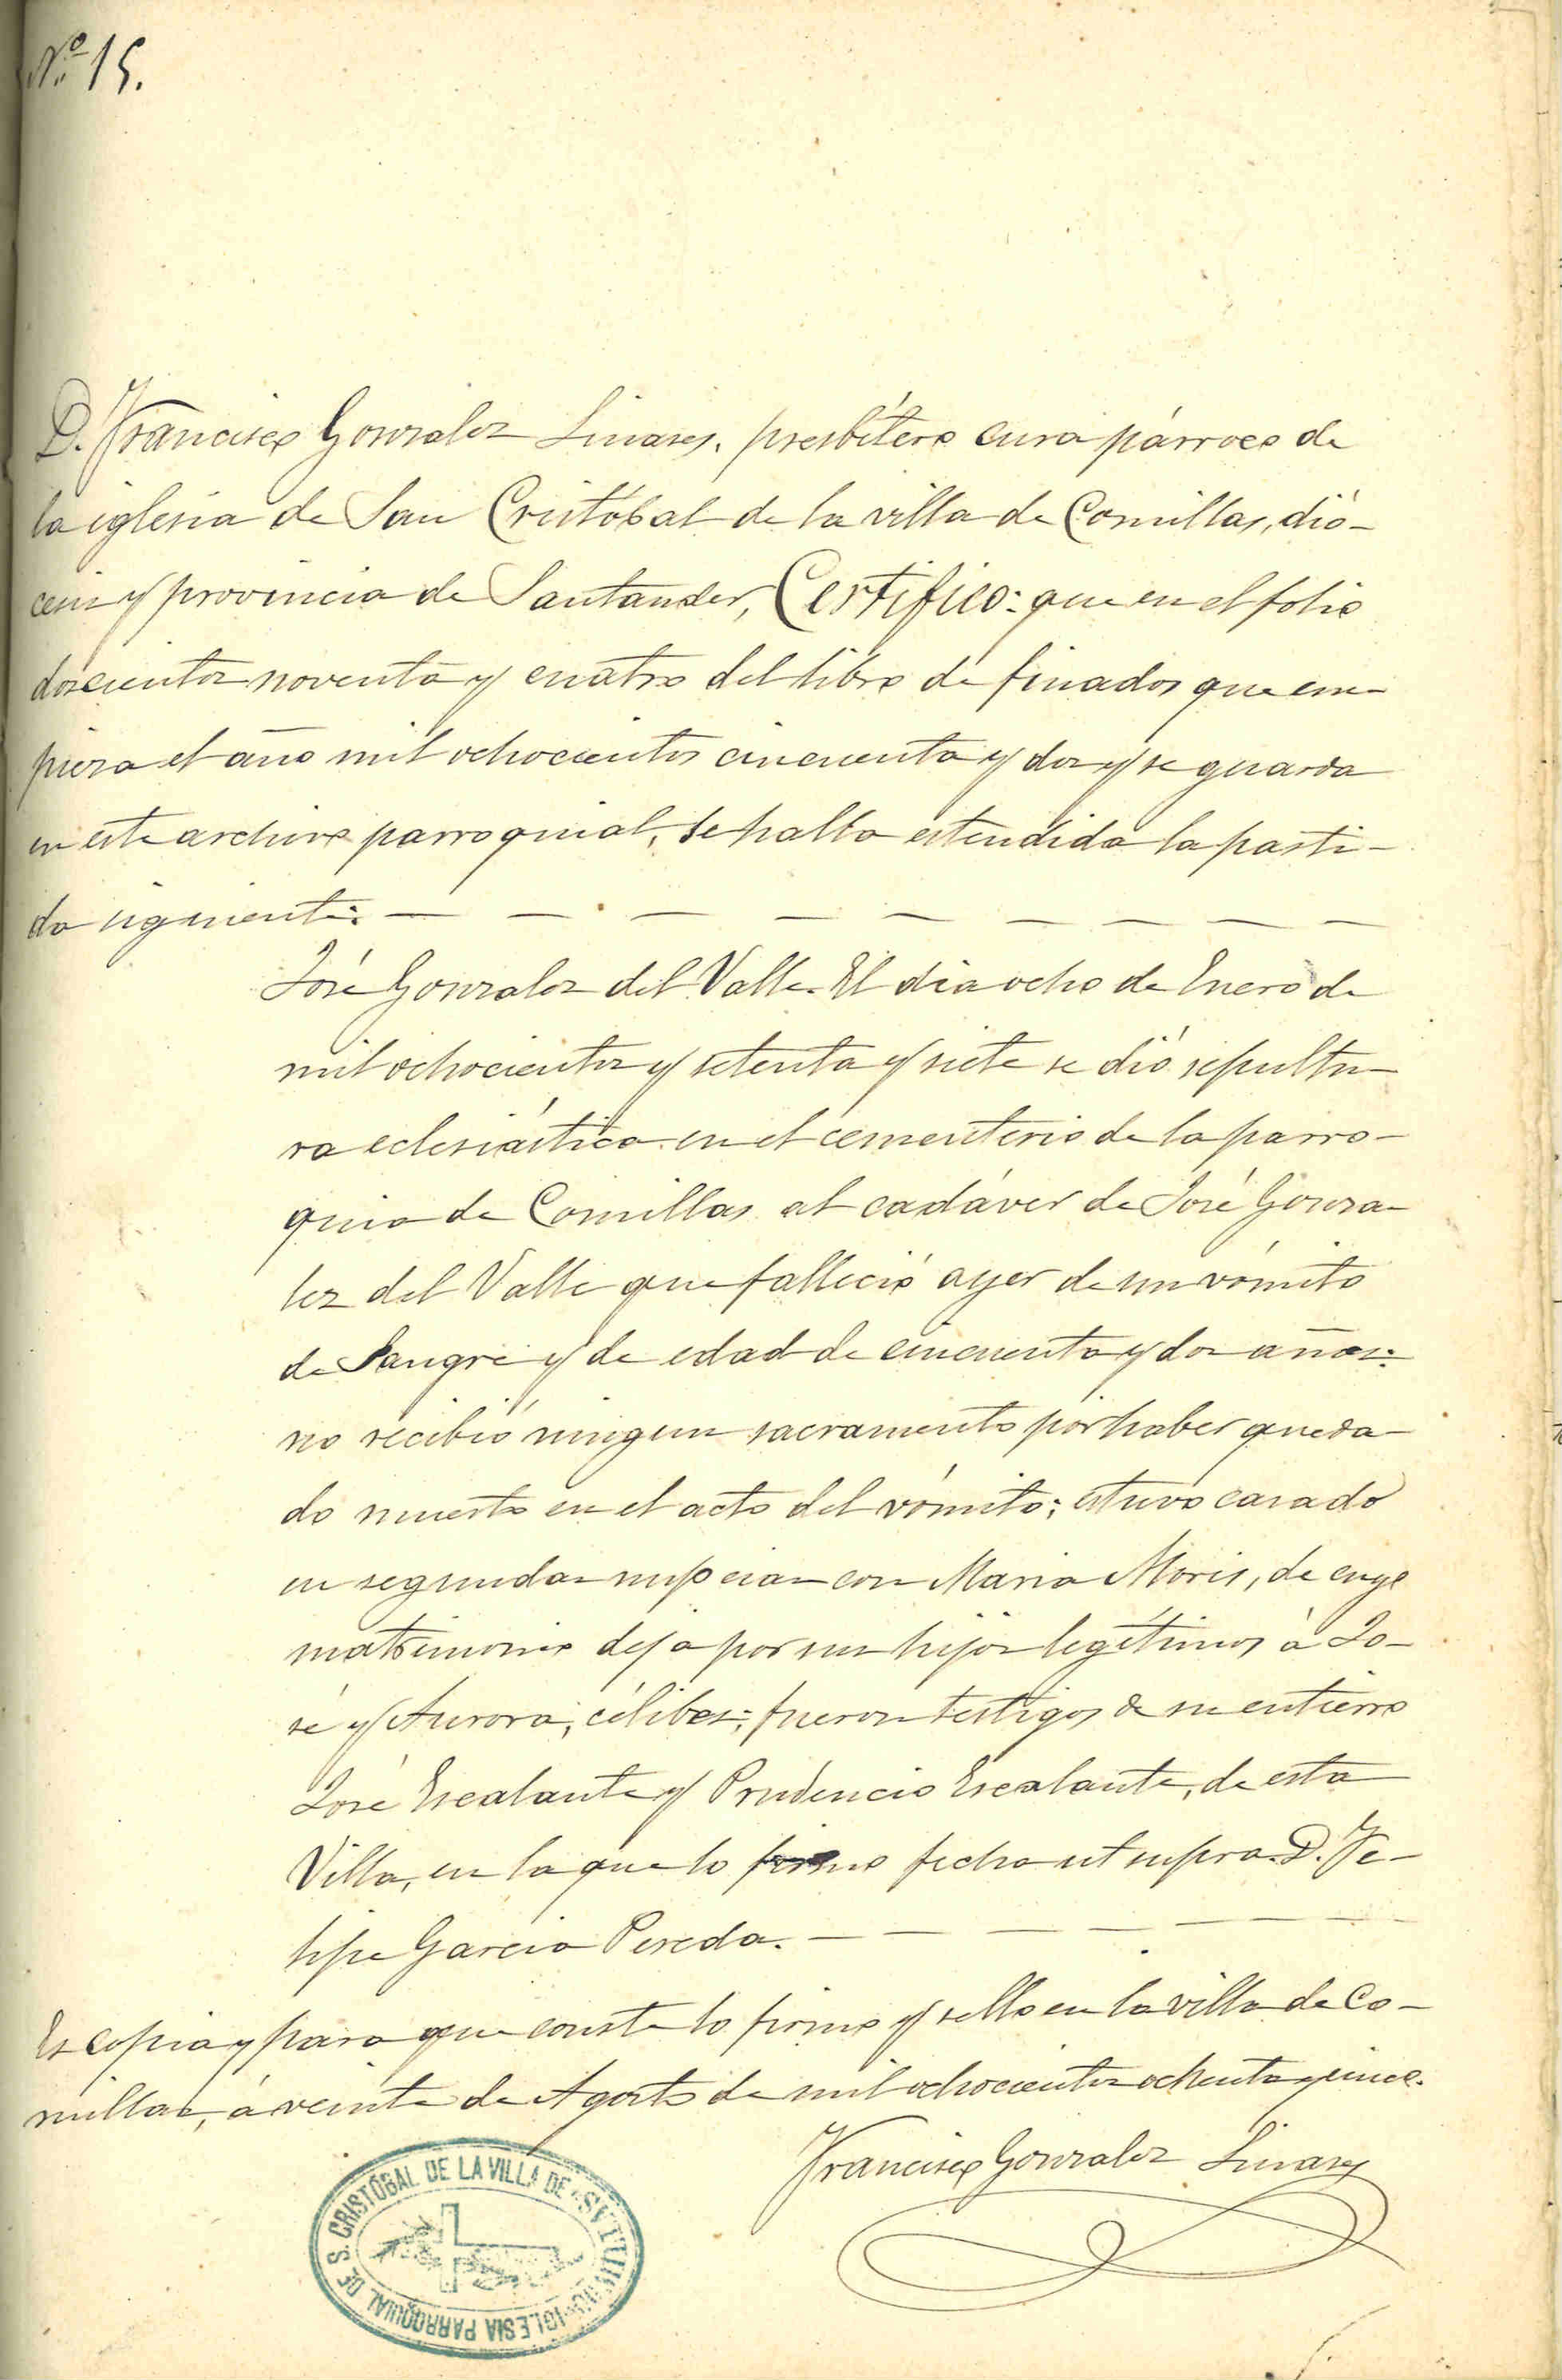 Nº 15.
D. Francisco Gonzalez Linares, presbítero cura párroco de
la iglesia de San Cristóbal de la villa de Comillas, dió-
cesis y provincia de Santander, Certifico: que en el folio
doscientos noventa y cuatro del libro de finados que em-
pieza el año mil ochocientos cincuenta y dos y se guarda
en este archivo parroquial, se halla estendida la parti-
da siguiente: — — — — — — — — —
José Gonzalez del Valle. El dia ocho de Enero de
mil ochocientos y setenta y siete se dió sepultu-
ra eclesiástica en el cementerio de la parro-
quia de Comillas al cadáver de José Gonza-
lez del Valle que falleció ayer de un vómito
de Sangre y de edad de cincuenta y dos años:
no recibió ningun sacramento por haber queda-
do muerto en el acto del vómito; estuvo casado
en segundas nupcias con Maria Moris, de cuyo
matrimonio deja por sus hijos legítimos á Jo-
sé y Aurora, célibes; fueron testigos de su entierro
José Escalante y Prudencio Escalante, de esta
Villa, en la que lo firmo fecha ut supra. D. Fe-
lipe Garcia Pereda. — — — — — —
Es copia y para que conste lo firmo y sello en la villa de Co-
millas, á veinte de Agosto de mil ochocientos ochenta y cinco.
Francisco Gonzalez Linares
IGLESIA PARROQUIAL DE S. CRISTÓBAL DE LA VILLA DE